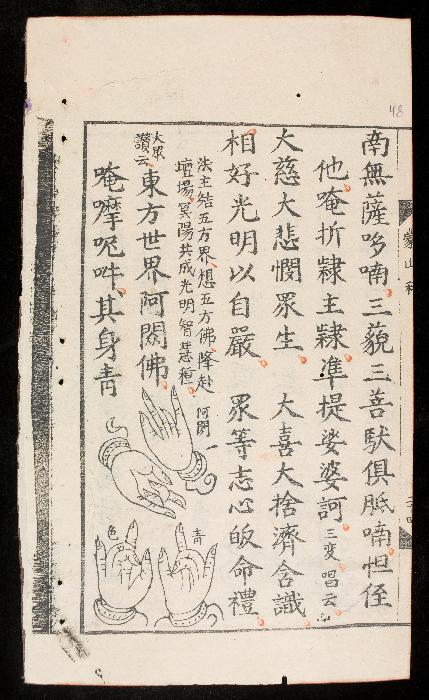 48
蒙山科
南無薩哆喃三藐三菩馱俱胝喃怛侄
他唵折隸主隸準提娑婆訶三变唱云
大慈大悲憫眾生 大喜大捨濟含識
相好光明以自嚴 眾等志心皈命禮
法主結五方界想五方佛降赴
壇場冥陽共成光明智慧種
阿閦
大眾
讚云
東方世界阿閦佛
唵摩呢吽其身青
青
色